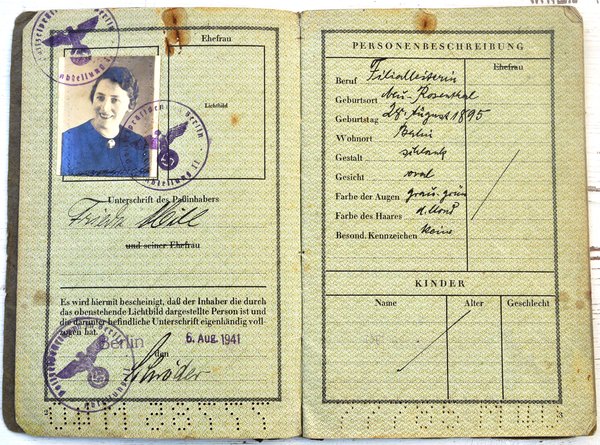 Ehefrau
Lichtbild
Unterschrift des Paßinhabers
Frieda Hill
und seiner Ehefrau
Es wird hiermit bescheinigt, daß der Inhaber die durch
das obenstehende Lichtbild dargestellte Person ist und
die darunter befindliche Unterschrift eigenhändig voll-
zogen hat.
Berlin
den
6. AUG. 1941
Schröder
2
PERSONENBESCHREIBUNG
Ehefrau
Beruf Filialleiterin
Geburtsort Neu-Rosenthal
Geburtstag 28. August 1895
Wohnort Berlin
Gestalt schlank
Gesicht oval
Farbe der Augen grau-grün
Farbe des Haares d. blond
Besond. Kennzeichen keine
KINDER
Name Alter Geschlecht
3